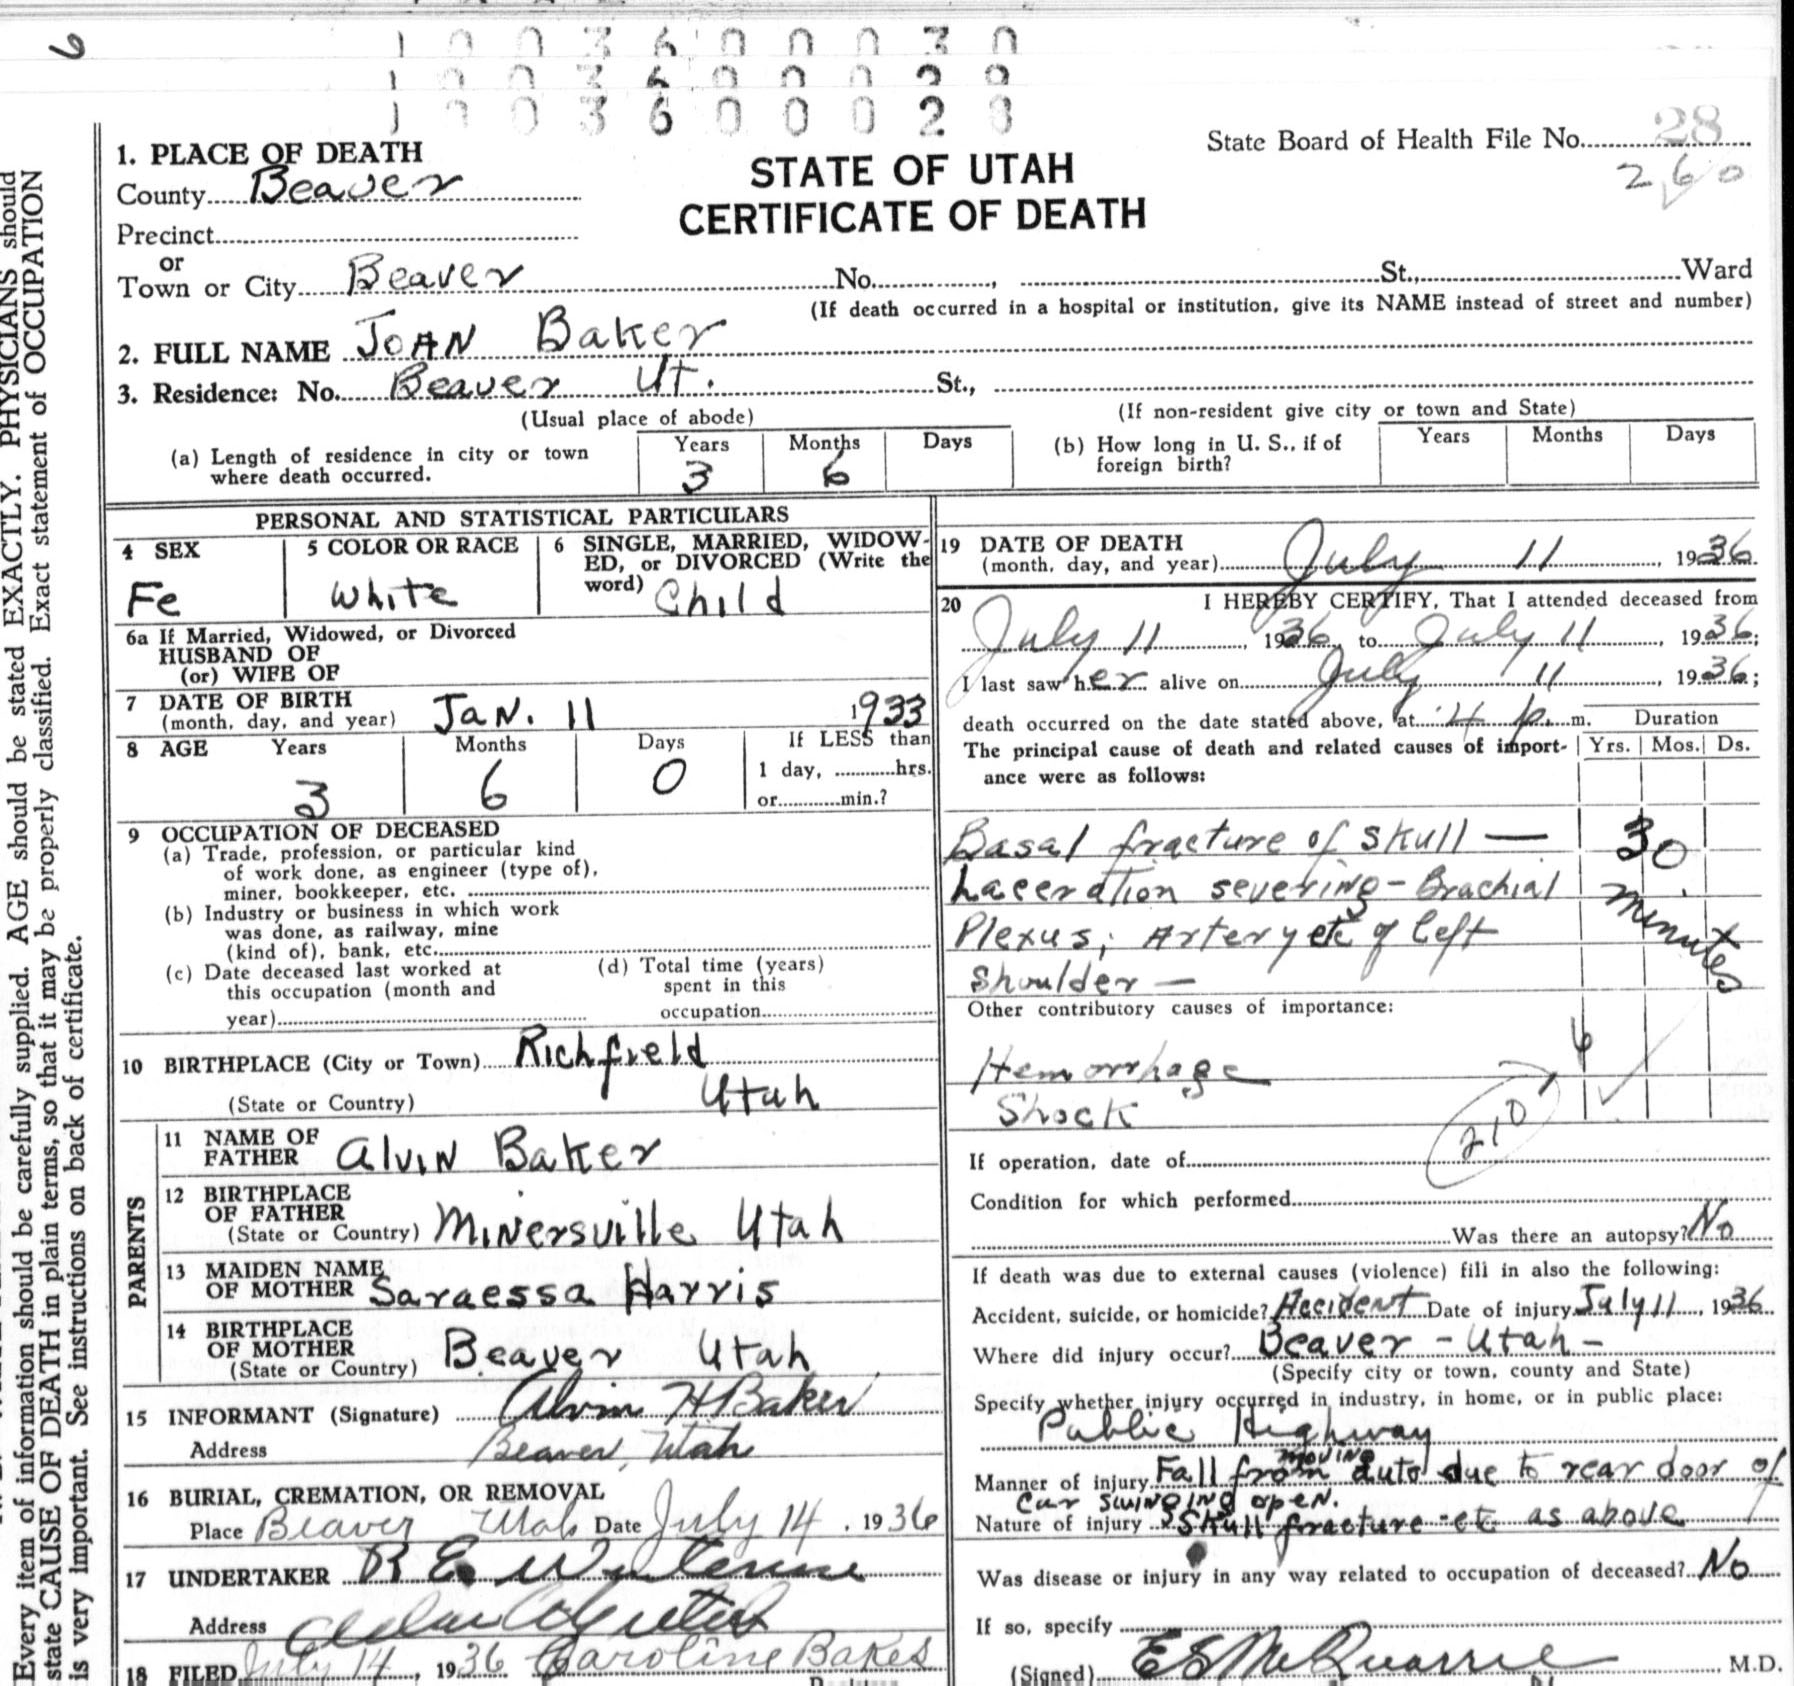 1 0 0 3 6 0 0 0 3 0
1 0 0 3 6 0 0 0 2 9
1 0 0 3 6 0 0 0 2 8
State Board of Health File No. 28
260
STATE OF UTAH
CERTIFICATE OF DEATH
1. PLACE OF DEATH
County Beaver
Precinct
or
Town or City Beaver No. , St., Ward
(If death occurred in a hospital or institution, give its NAME instead of street and number)
2. FULL NAME JOAN Baker
3. Residence: No. Beaver Ut. St.,
(Usual place of abode) (If non-resident give city or town and State)
(a) Length of residence in city or town where death occurred. Years 3 Months 6 Days
(b) How long in U. S., if of foreign birth? Years Months Days
PERSONAL AND STATISTICAL PARTICULARS
4 SEX Fe
5 COLOR OR RACE White
6 SINGLE, MARRIED, WIDOWED, or DIVORCED (Write the word) Child
6a If Married, Widowed, or Divorced
HUSBAND OF
(or) WIFE OF
7 DATE OF BIRTH
(month, day, and year) Jan. 11 1933
8 AGE Years 3 Months 6 Days 0 If LESS than
1 day, hrs.
or min.?
9 OCCUPATION OF DECEASED
(a) Trade, profession, or particular kind
of work done, as engineer (type of),
miner, bookkeeper, etc.
(b) Industry or business in which work
was done, as railway, mine
(kind of), bank, etc.
(c) Date deceased last worked at
this occupation (month and
year)
(d) Total time (years)
spent in this
occupation
10 BIRTHPLACE (City or Town) Richfield
(State or Country) Utah
PARENTS
11 NAME OF
FATHER Alvin Baker
12 BIRTHPLACE
OF FATHER
(State or Country) Minersville Utah
13 MAIDEN NAME
OF MOTHER Saraessa Harris
14 BIRTHPLACE
OF MOTHER
(State or Country) Beaver Utah
15 INFORMANT (Signature) Alvin H Baker
Address Beaver, Utah
16 BURIAL, CREMATION, OR REMOVAL
Place Beaver Utah Date July 14, 1936
17 UNDERTAKER R E
Address
18 FILED July 14, 1936 Caroline Bakes
19 DATE OF DEATH
(month, day, and year) July 11, 1936
20 I HEREBY CERTIFY, That I attended deceased from
July 11, 1936, to July 11, 1936;
I last saw her alive on July 11, 1936;
death occurred on the date stated above, at 4 p. m. Duration
The principal cause of death and related causes of import- Yrs. Mos. Ds.
ance were as follows:
Basal fracture of skull — 30
Laceration severing - Brachial minutes
Plexus, Artery etc of left
shoulder —
Other contributory causes of importance:
Hemorrhage
Shock 210
If operation, date of
Condition for which performed
Was there an autopsy? No
If death was due to external causes (violence) fill in also the following:
Accident, suicide, or homicide? Accident Date of injury July 11, 1936
Where did injury occur? Beaver - Utah -
(Specify city or town, county and State)
Specify whether injury occurred in industry, in home, or in public place:
Public Highway
Manner of injury Fall from moving auto due to rear door of
car swinging open.
Nature of injury Skull fracture - etc as above
Was disease or injury in any way related to occupation of deceased? No
If so, specify
(Signed) E S McQuarrie M.D.
Every item of information should be carefully supplied. AGE should be stated EXACTLY. PHYSICIANS should
state CAUSE OF DEATH in plain terms, so that it may be properly classified. Exact statement of OCCUPATION
is very important. See instructions on back of certificate.